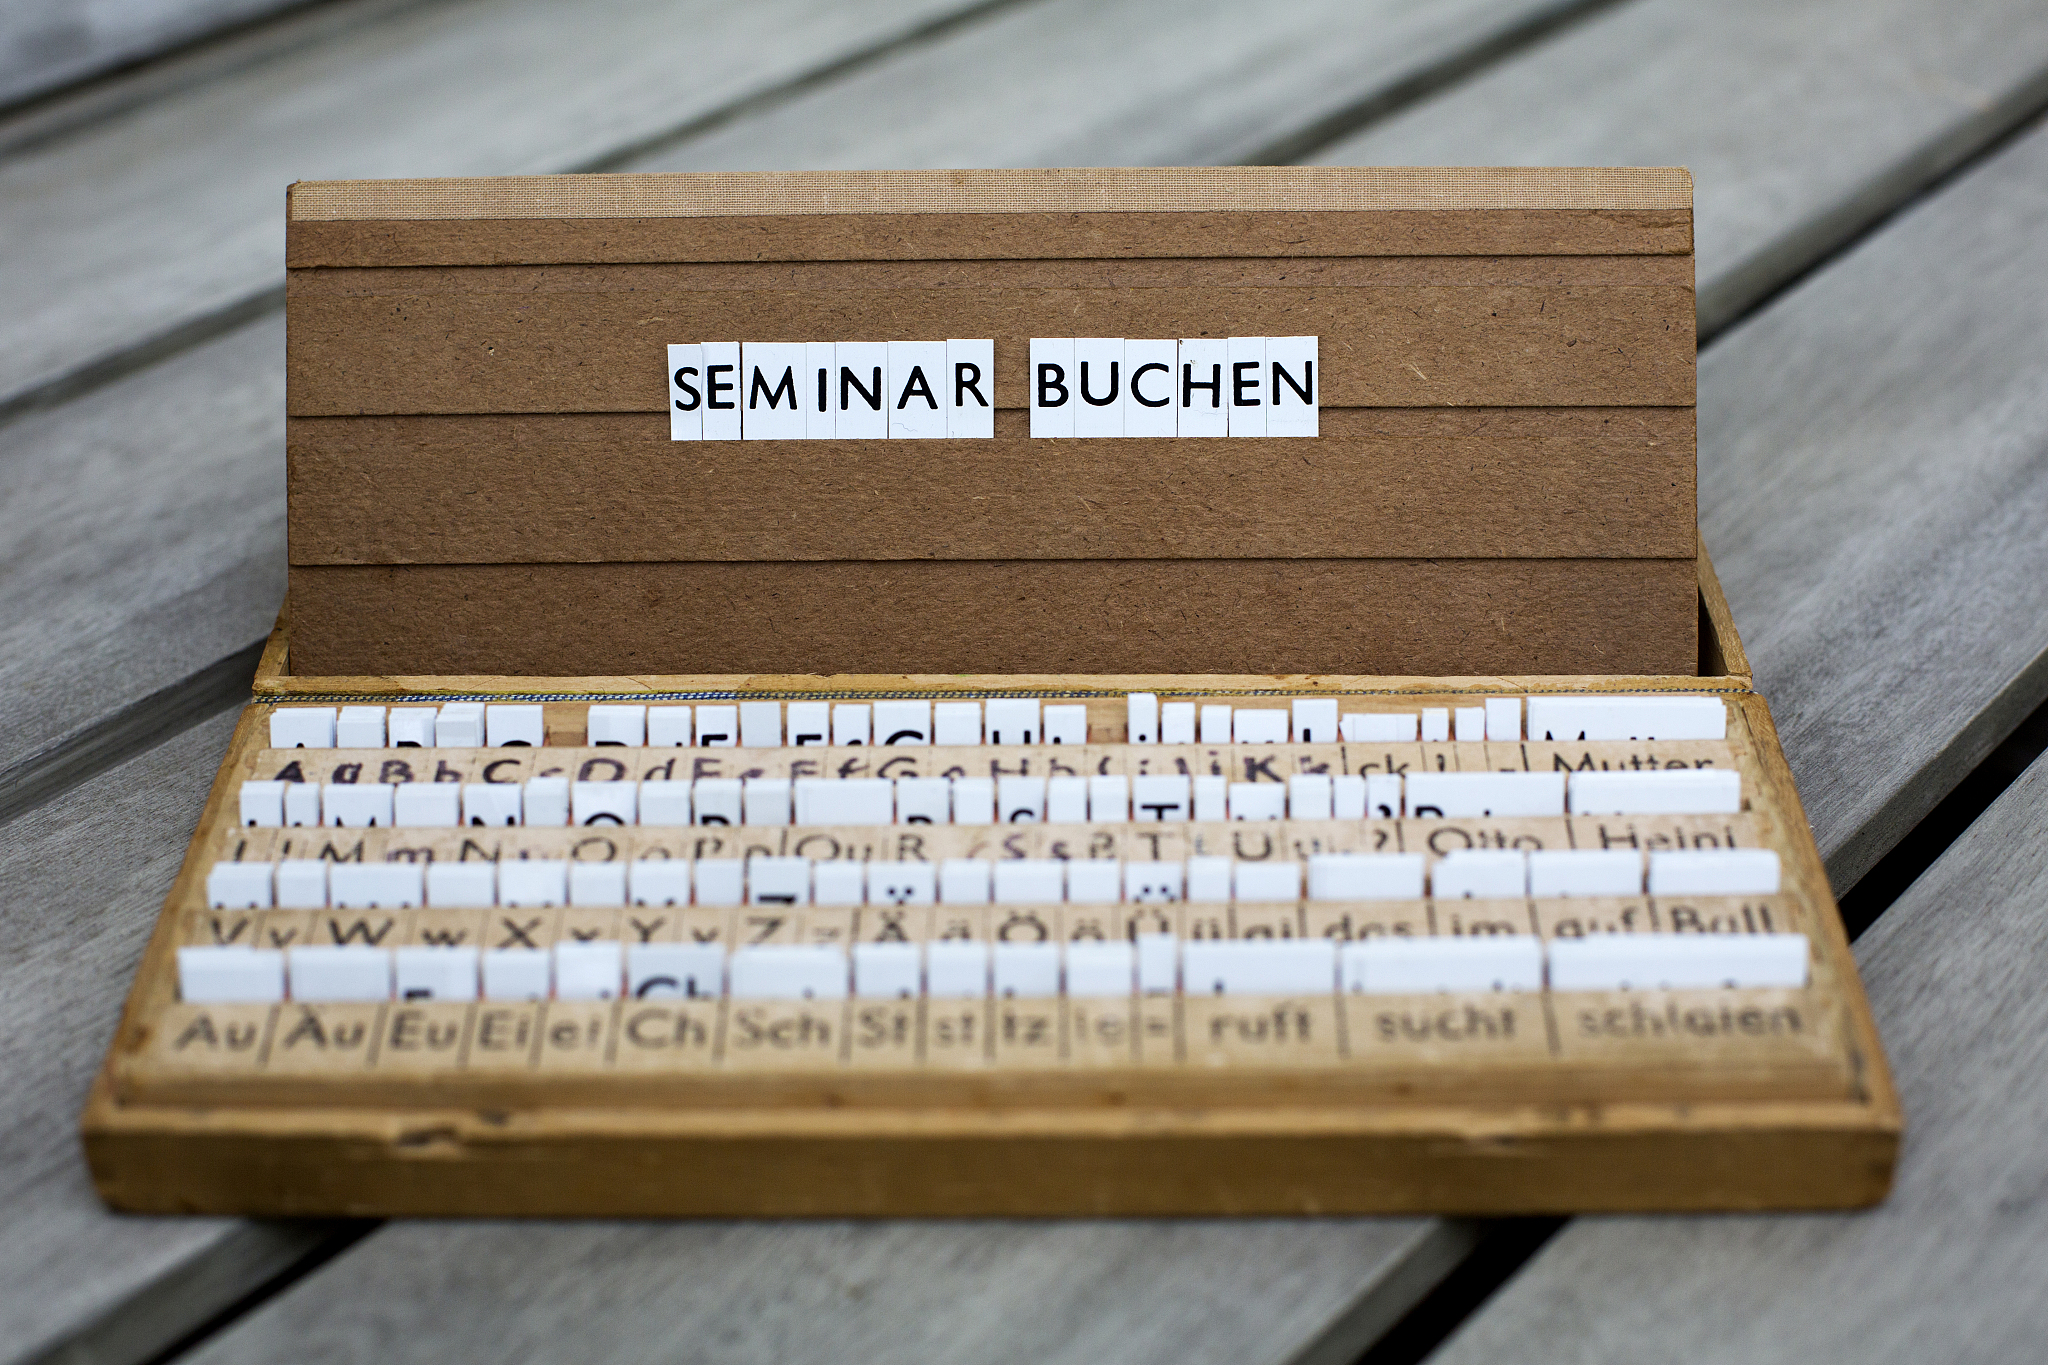 SEMINAR BUCHEN
A a B b C c D d E e F f G g H h i j K k ck ! - Mutter
l M m N n O o P p Qu R r S s ß T t U u . ? Otto Heini
V v W w X x Y y Z z Ä ä Ö ö Ü ü ai das im auf Ball
Au Äu Eu Ei ei Ch Sch St st tz ie = ruft sucht schlafen